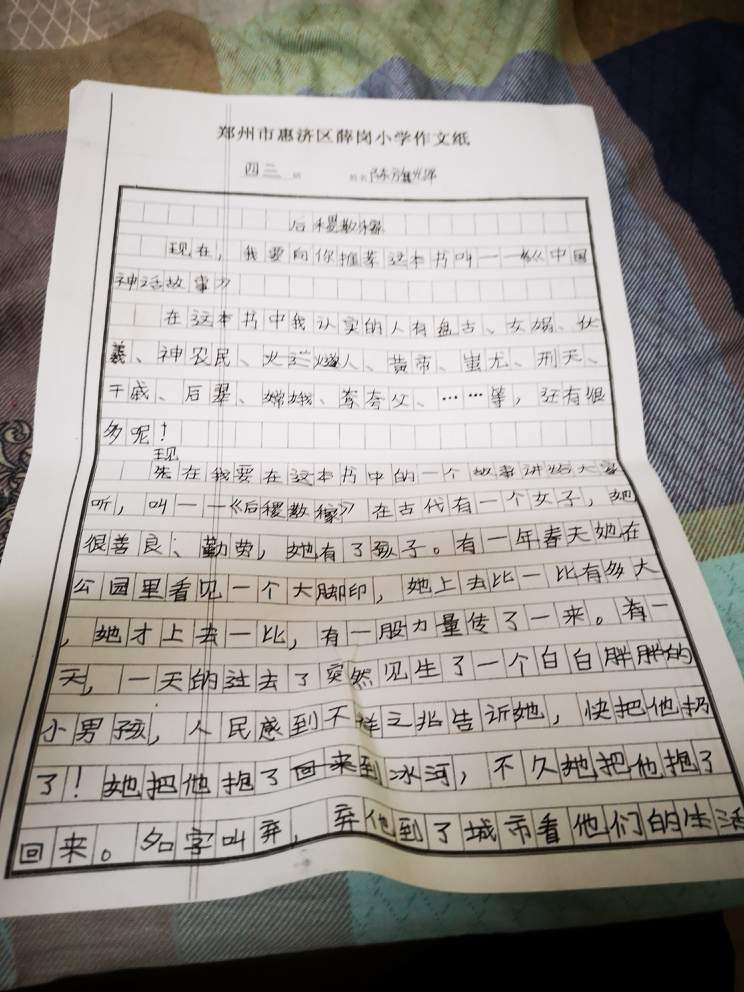 郑州市惠济区薛岗小学作文纸
四三 班 姓名 陈
后稷教稼
现在，我要向你推荐这本书叫一一《中国
神话故事》
在这本书中我认实的人有盘古、女娲、伏
羲、神农民、火人、黄帝、蚩尤、刑天、
干戚、后羿、嫦娥、夸父、……等，还有很
多呢！
现
在我要在这本书中的一个故事讲给大家
听，叫一一《后稷教稼》在古代有一个女子，她
很善良、勤劳，她有了孩子。有一年春天她在
公园里看见一个大脚印，她上去比一比有多大
，她才上去一比，有一股力量传了一来。有一
天，一天的过去了突然见生了一个白白胖胖的
小男孩，人民感到不祥之兆告诉她，快把他扔
了！她把他抱了回来到冰河，不久她把他抱了
回来。名字叫弃，弃他到了城市看他们的生活